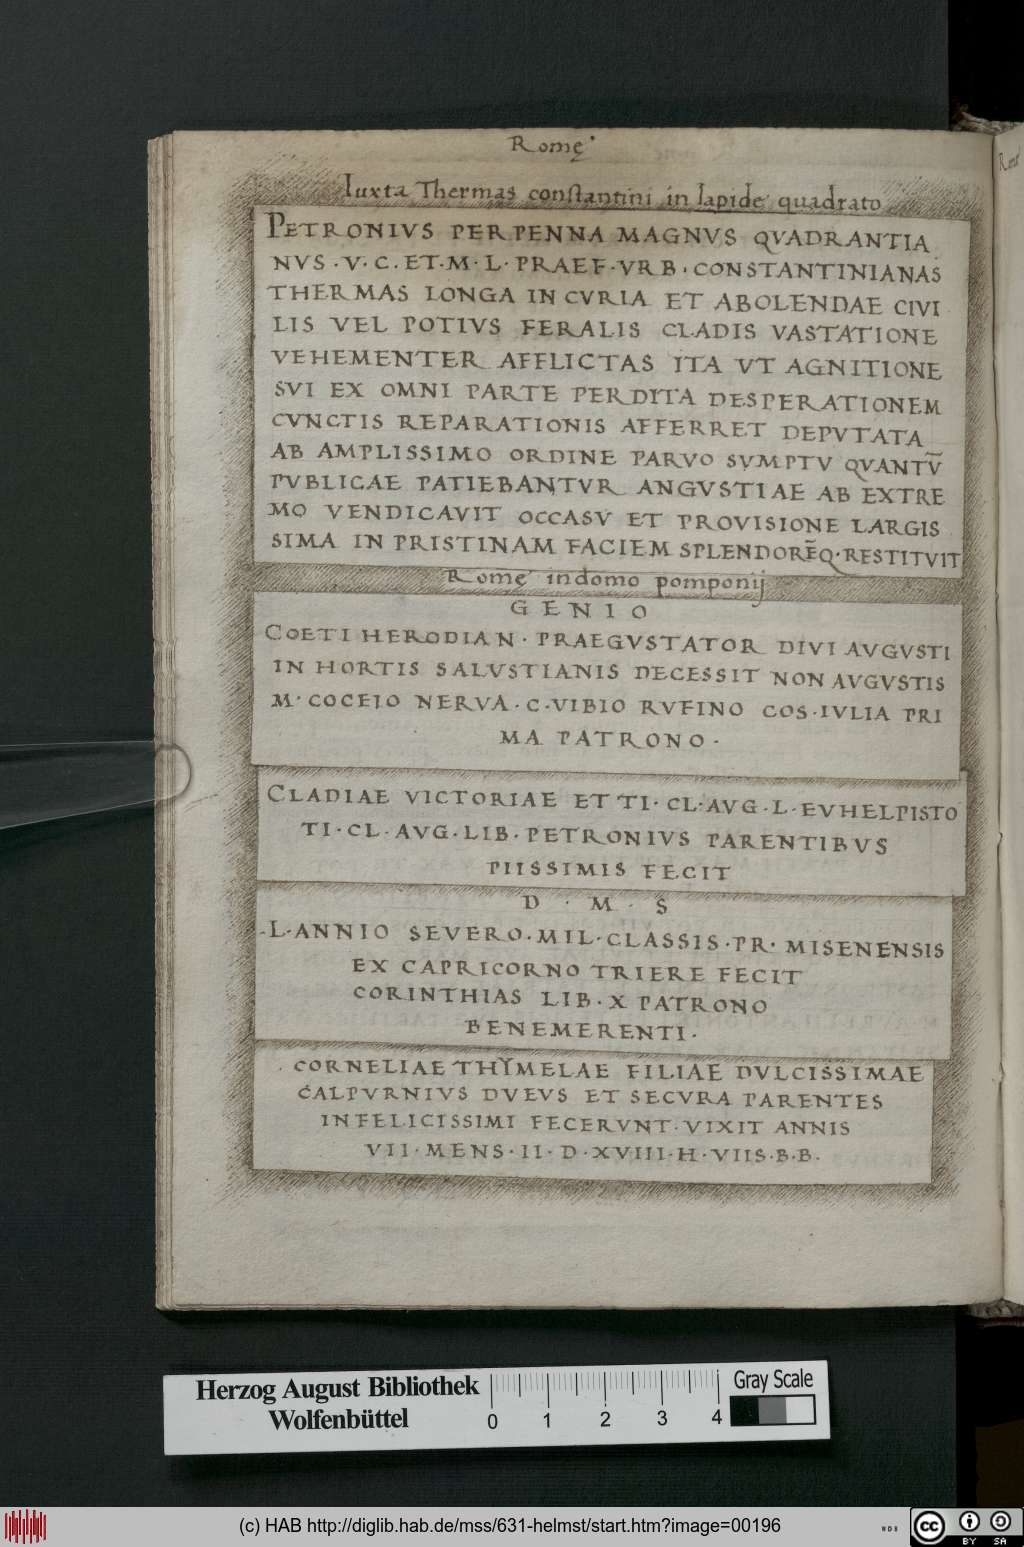 Romę
Iuxta Thermas constantini in lapide quadrato
PETRONIVS PERPENNA MAGNVS QVADRANTIA
NVS · V · C · ET · M · L · PRAEF · VRB · CONSTANTINIANAS
THERMAS LONGA IN CVRIA ET ABOLENDAE CIVI
LIS VEL POTIVS FERALIS CLADIS VASTATIONE
VEHEMENTER AFFLICTAS ITA VT AGNITIONE
SVI EX OMNI PARTE PERDITA DESPERATIONEM
CVNCTIS REPARATIONIS AFFERRET DEPVTATA
AB AMPLISSIMO ORDINE PARVO SVMPTV QVANTV̄
PVBLICAE PATIEBANTVR ANGVSTIAE AB EXTRE
MO VENDICAVIT OCCASV ET PROVISIONE LARGIS
SIMA IN PRISTINAM FACIEM SPLENDORĒQ · RESTITVIT
Romę in domo pomponij
GENIO
COETI HERODIAN · PRAEGVSTATOR DIVI AVGVSTI
IN HORTIS SALVSTIANIS DECESSIT NON AVGVSTIS
M · COCEIO NERVA · C · VIBIO RVFINO COS · IVLIA PRI
MA PATRONO ·
CLADIAE VICTORIAE ET TI · CL · AVG · L · EVHELPISTO
TI · CL · AVG · LIB · PETRONIVS PARENTIBVS
PIISSIMIS FECIT
D · M · S
L · ANNIO SEVERO · MIL · CLASSIS · PR · MISENENSIS
EX CAPRICORNO TRIERE FECIT
CORINTHIAS LIB · X PATRONO
BENEMERENTI ·
CORNELIAE THYMELAE FILIAE DVLCISSIMAE
CALPVRNIVS DVEVS ET SECVRA PARENTES
INFELICISSIMI FECERVNT · VIXIT ANNIS
VII · MENS · II · D · XVIII · H · VIIS · B · B ·
Herzog August Bibliothek
Wolfenbüttel
0 1 2 3 4
Gray Scale
(c) HAB http://diglib.hab.de/mss/631-helmst/start.htm?image=00196
WDB
cc BY SA